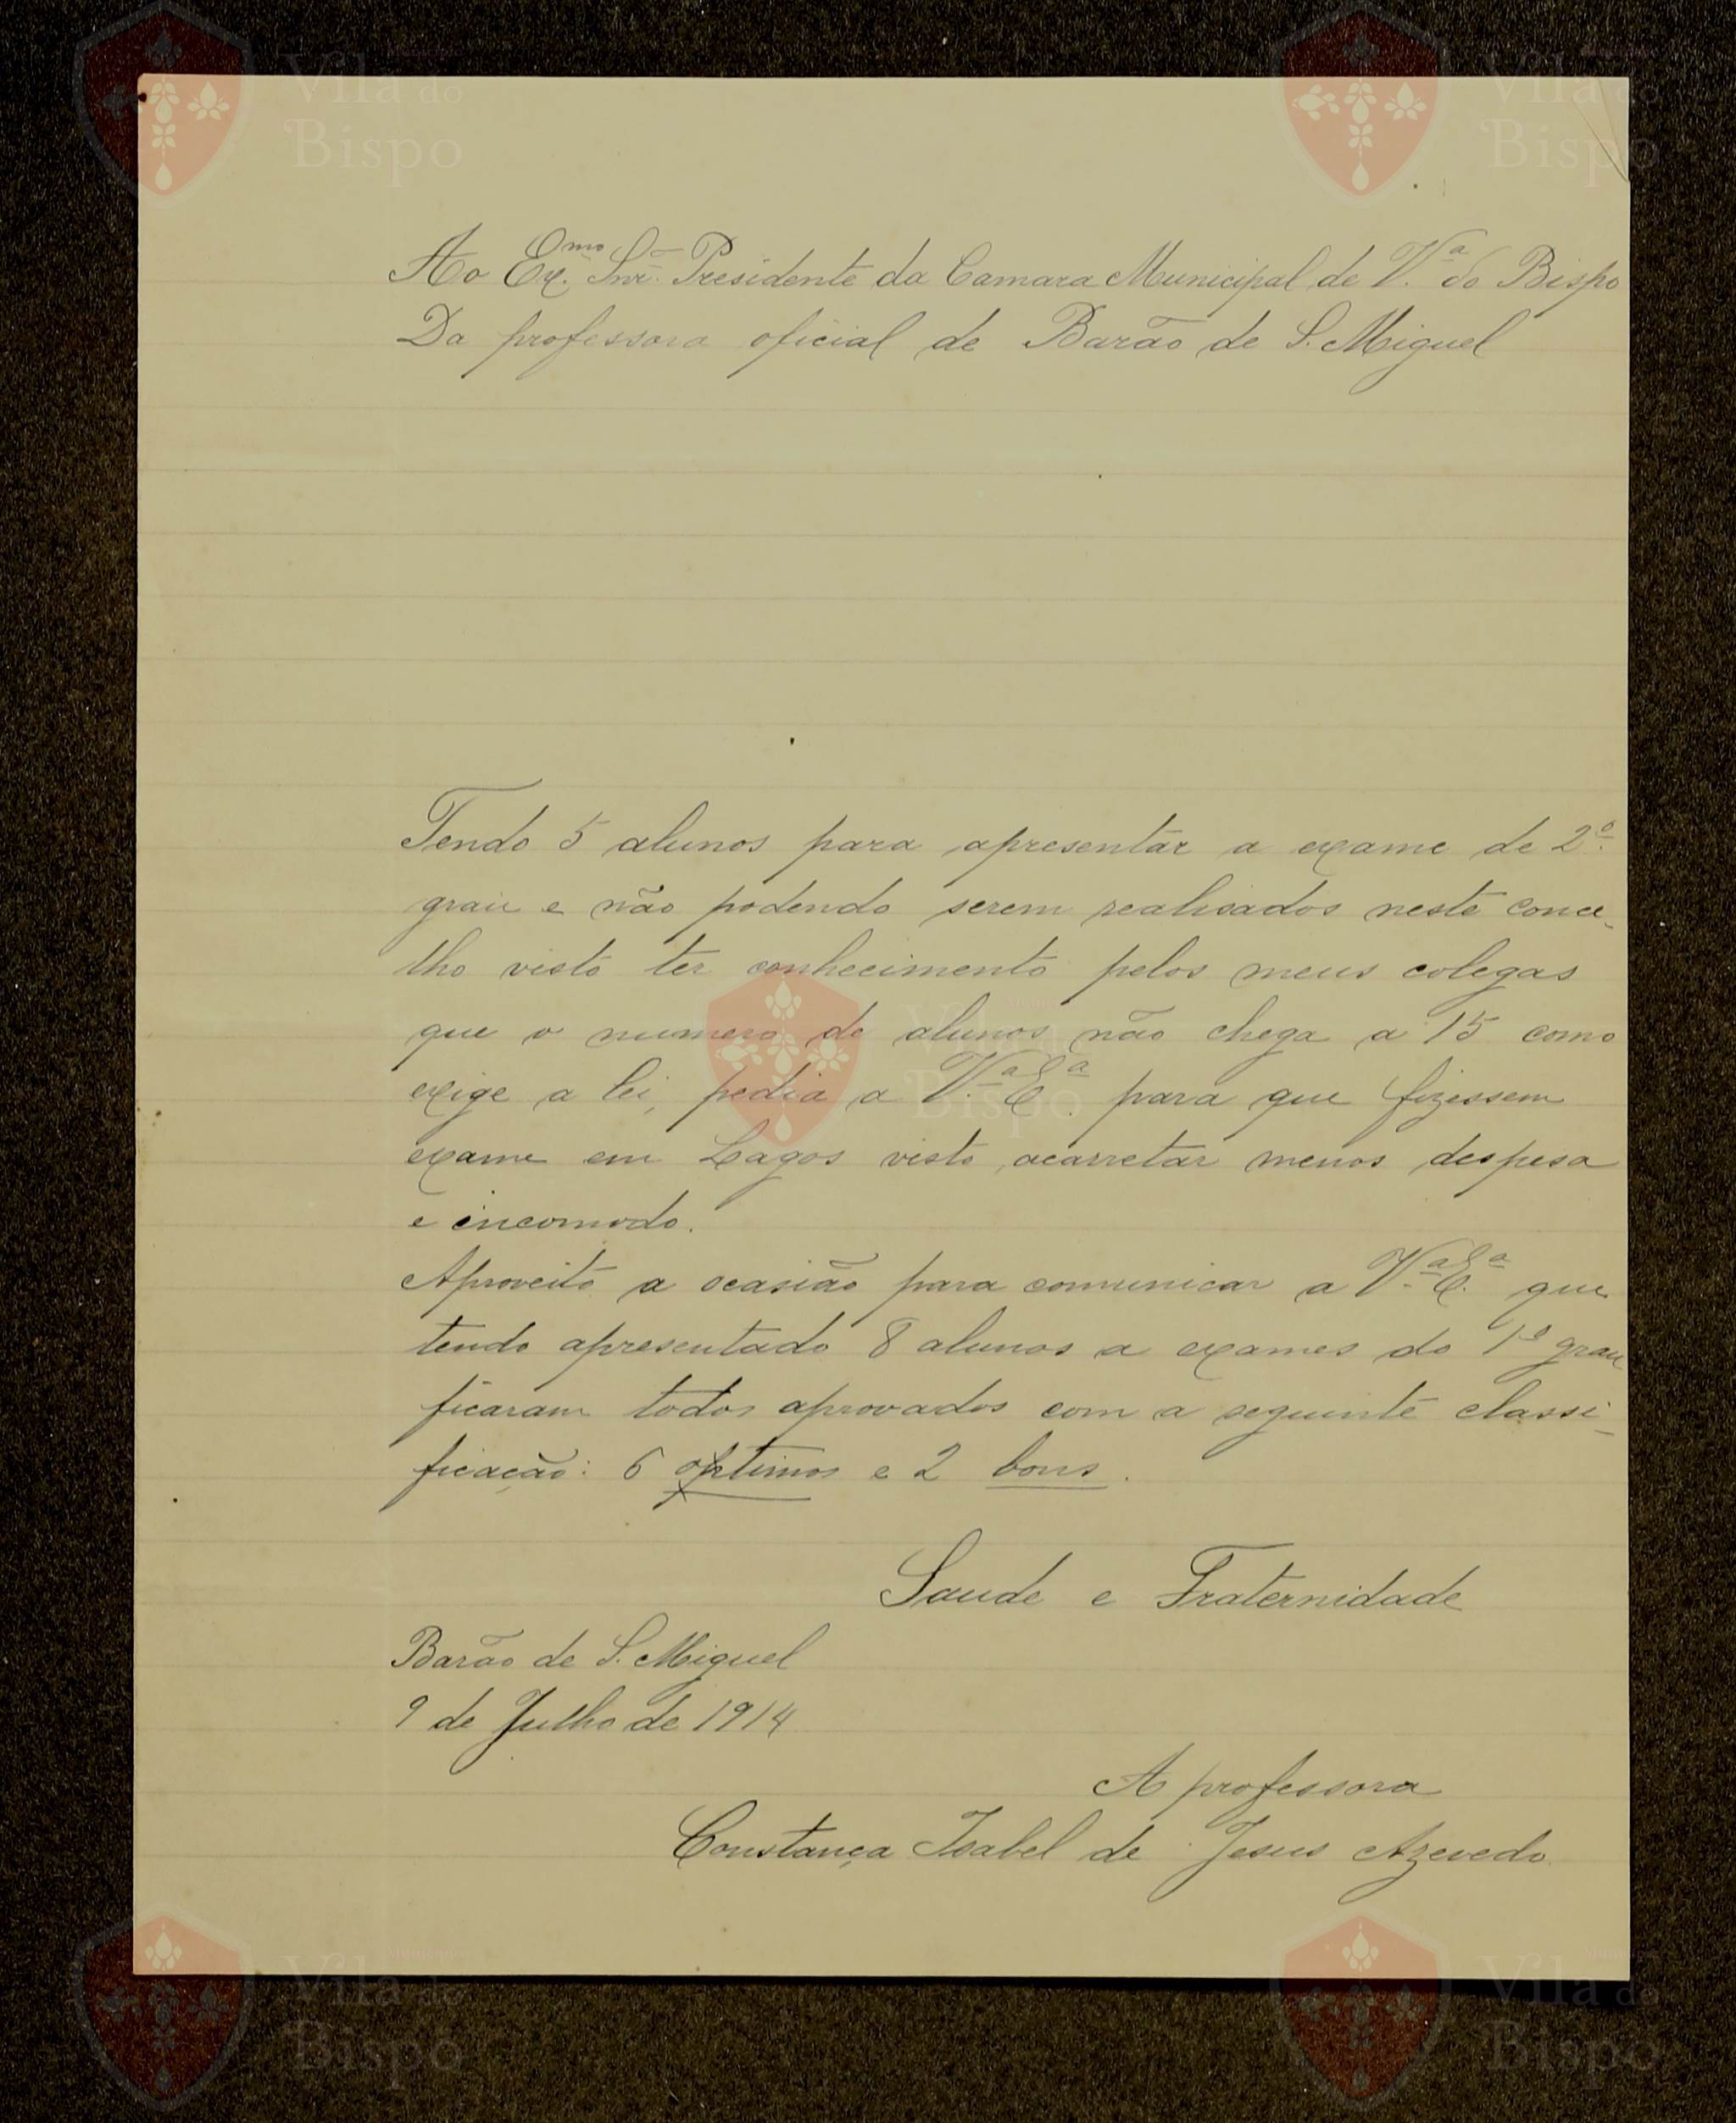 Vila do
Bispo
Vila do
Bispo
Ao Ex.mo Snr. Presidente da Camara Municipal de V.ª do Bispo
Da professora oficial de Barão de S. Miguel
Tendo 5 alunos para apresentar a exame de 2.º
grau e não podendo serem realisados neste conce-
lho visto ter conhecimento pelos meus colegas
que o numero de alunos não chega a 15 como
exige a lei, pedia a V.ª E.ª para que fizessem
exame em Lagos visto acarretar menos despesa
e incomodo.
Aproveito a ocasião para comunicar a V.ª E.ª que
tendo apresentado 8 alunos a exames do 1º grau
ficaram todos aprovados com a seguinte classi-
ficação: 6 optimos e 2 bons.
Saude e Fraternidade
Barão de S. Miguel
9 de Julho de 1914
A professora
Constança Isabel de Jesus Azevedo
Vila do
Bispo
Vila do
Bispo